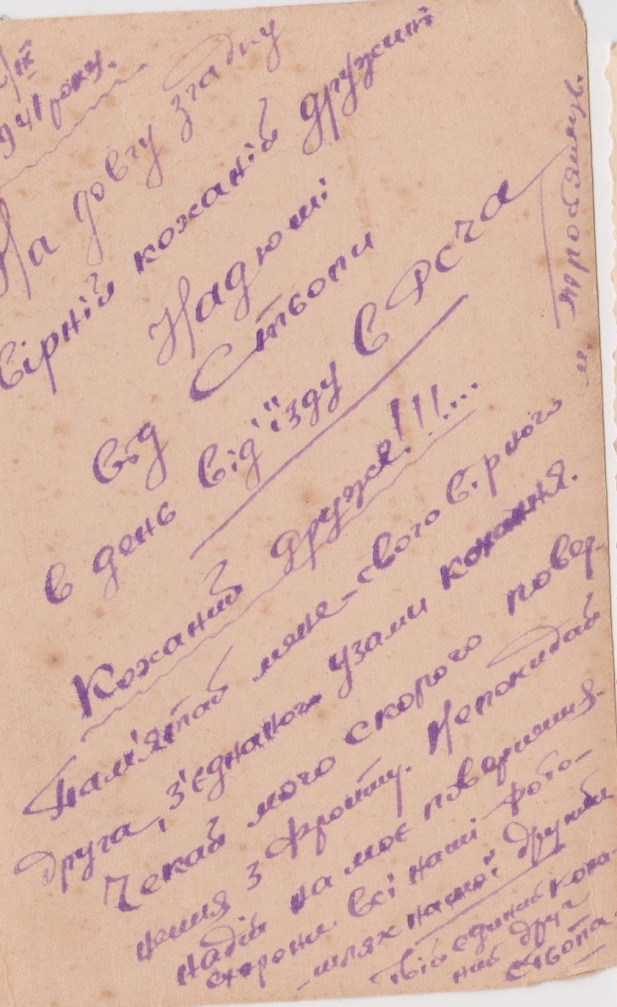 /ІХ
941 року.
На довгу згадку
вірній коханій дружині
Надюші
від Стьопи
в день від'їзду в РСЧА
м.
Коханий друже!!!...
Пам'ятай мене - свого вірного
друга, з'єднаного узами кохання.
Чекай мого скорого повер-
нення з фронту. Непокидай
надій на моє повернення.
сторони. Всі наші фото-
-шлях нашої дружби
твій єдиний коха-
ний друг
Стьопа.